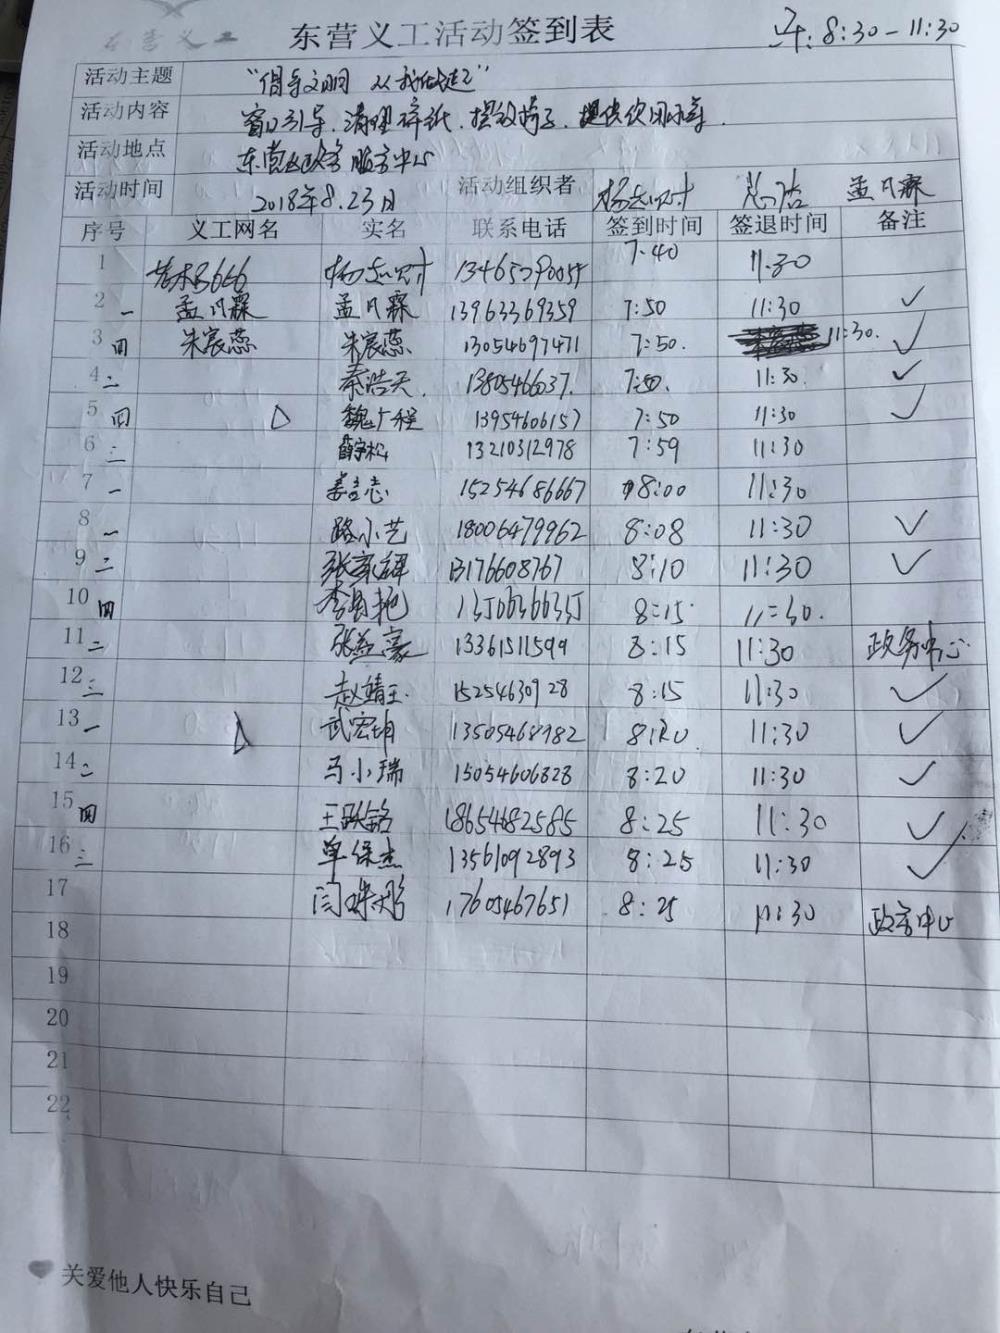 东营义工 东营义工活动签到表 上午: 8:30-11:30
活动主题 "倡导文明 从我做起"
活动内容 窗口引导、清理碎纸、摆放椅子、提供饮用水等.
活动地点 东营区政务服务中心
活动时间 2018年8.23日 活动组织者 孟凡霖
序号 义工网名 实名 联系电话 签到时间 签退时间 备注
1 7:40 11:30
2 一 孟凡霖 孟凡霖 13963369359 7:50 11:30 ✓
3 四 朱宸蕊 朱宸蕊 13054697471 7:50. 11:30. ✓
4 二 秦浩天. 13805466037. 7:50. 11:30. ✓
5 四 魏广程 13954606157 7:50 11:30 ✓
6 三 薛宇松 13210312978 7:59 11:30
7 一 姜孟志 15254686667 8:00 11:30
8 一 路小艺 18006479962 8:08 11:30 ✓
9 二 张家铎 13176608767 8:10 11:30 ✓
10 四 8:15 11:30.
11 二 张益豪 13361511599 8:15 11:30 政务中心
12 三 赵靖王. 15254630928 8:15 11:30 ✓
13 一 武宏玥 13505468982 8:20 11:30 ✓
14 二 马小瑞 15054606828 8:20 11:30 ✓
15 四 18654682585 8:25 11:30 ✓
16 三 单保杰 13561092893 8:25 11:30 ✓
17 17605467651 8:25 11:30 政务中心
18
19
20
21
22
关爱他人快乐自己